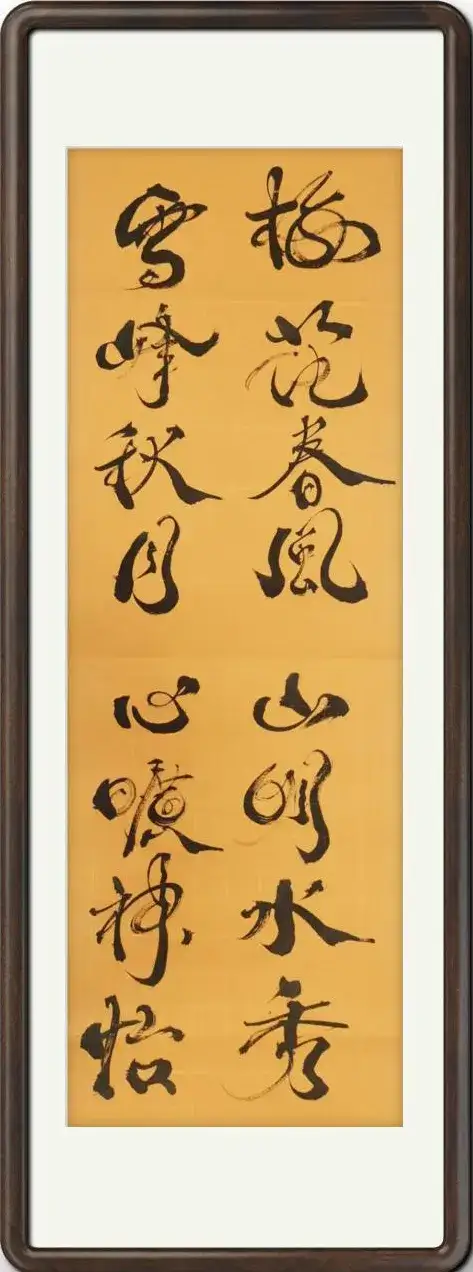 梅花春風 山明水秀
雪峰秋月 心曠神怡